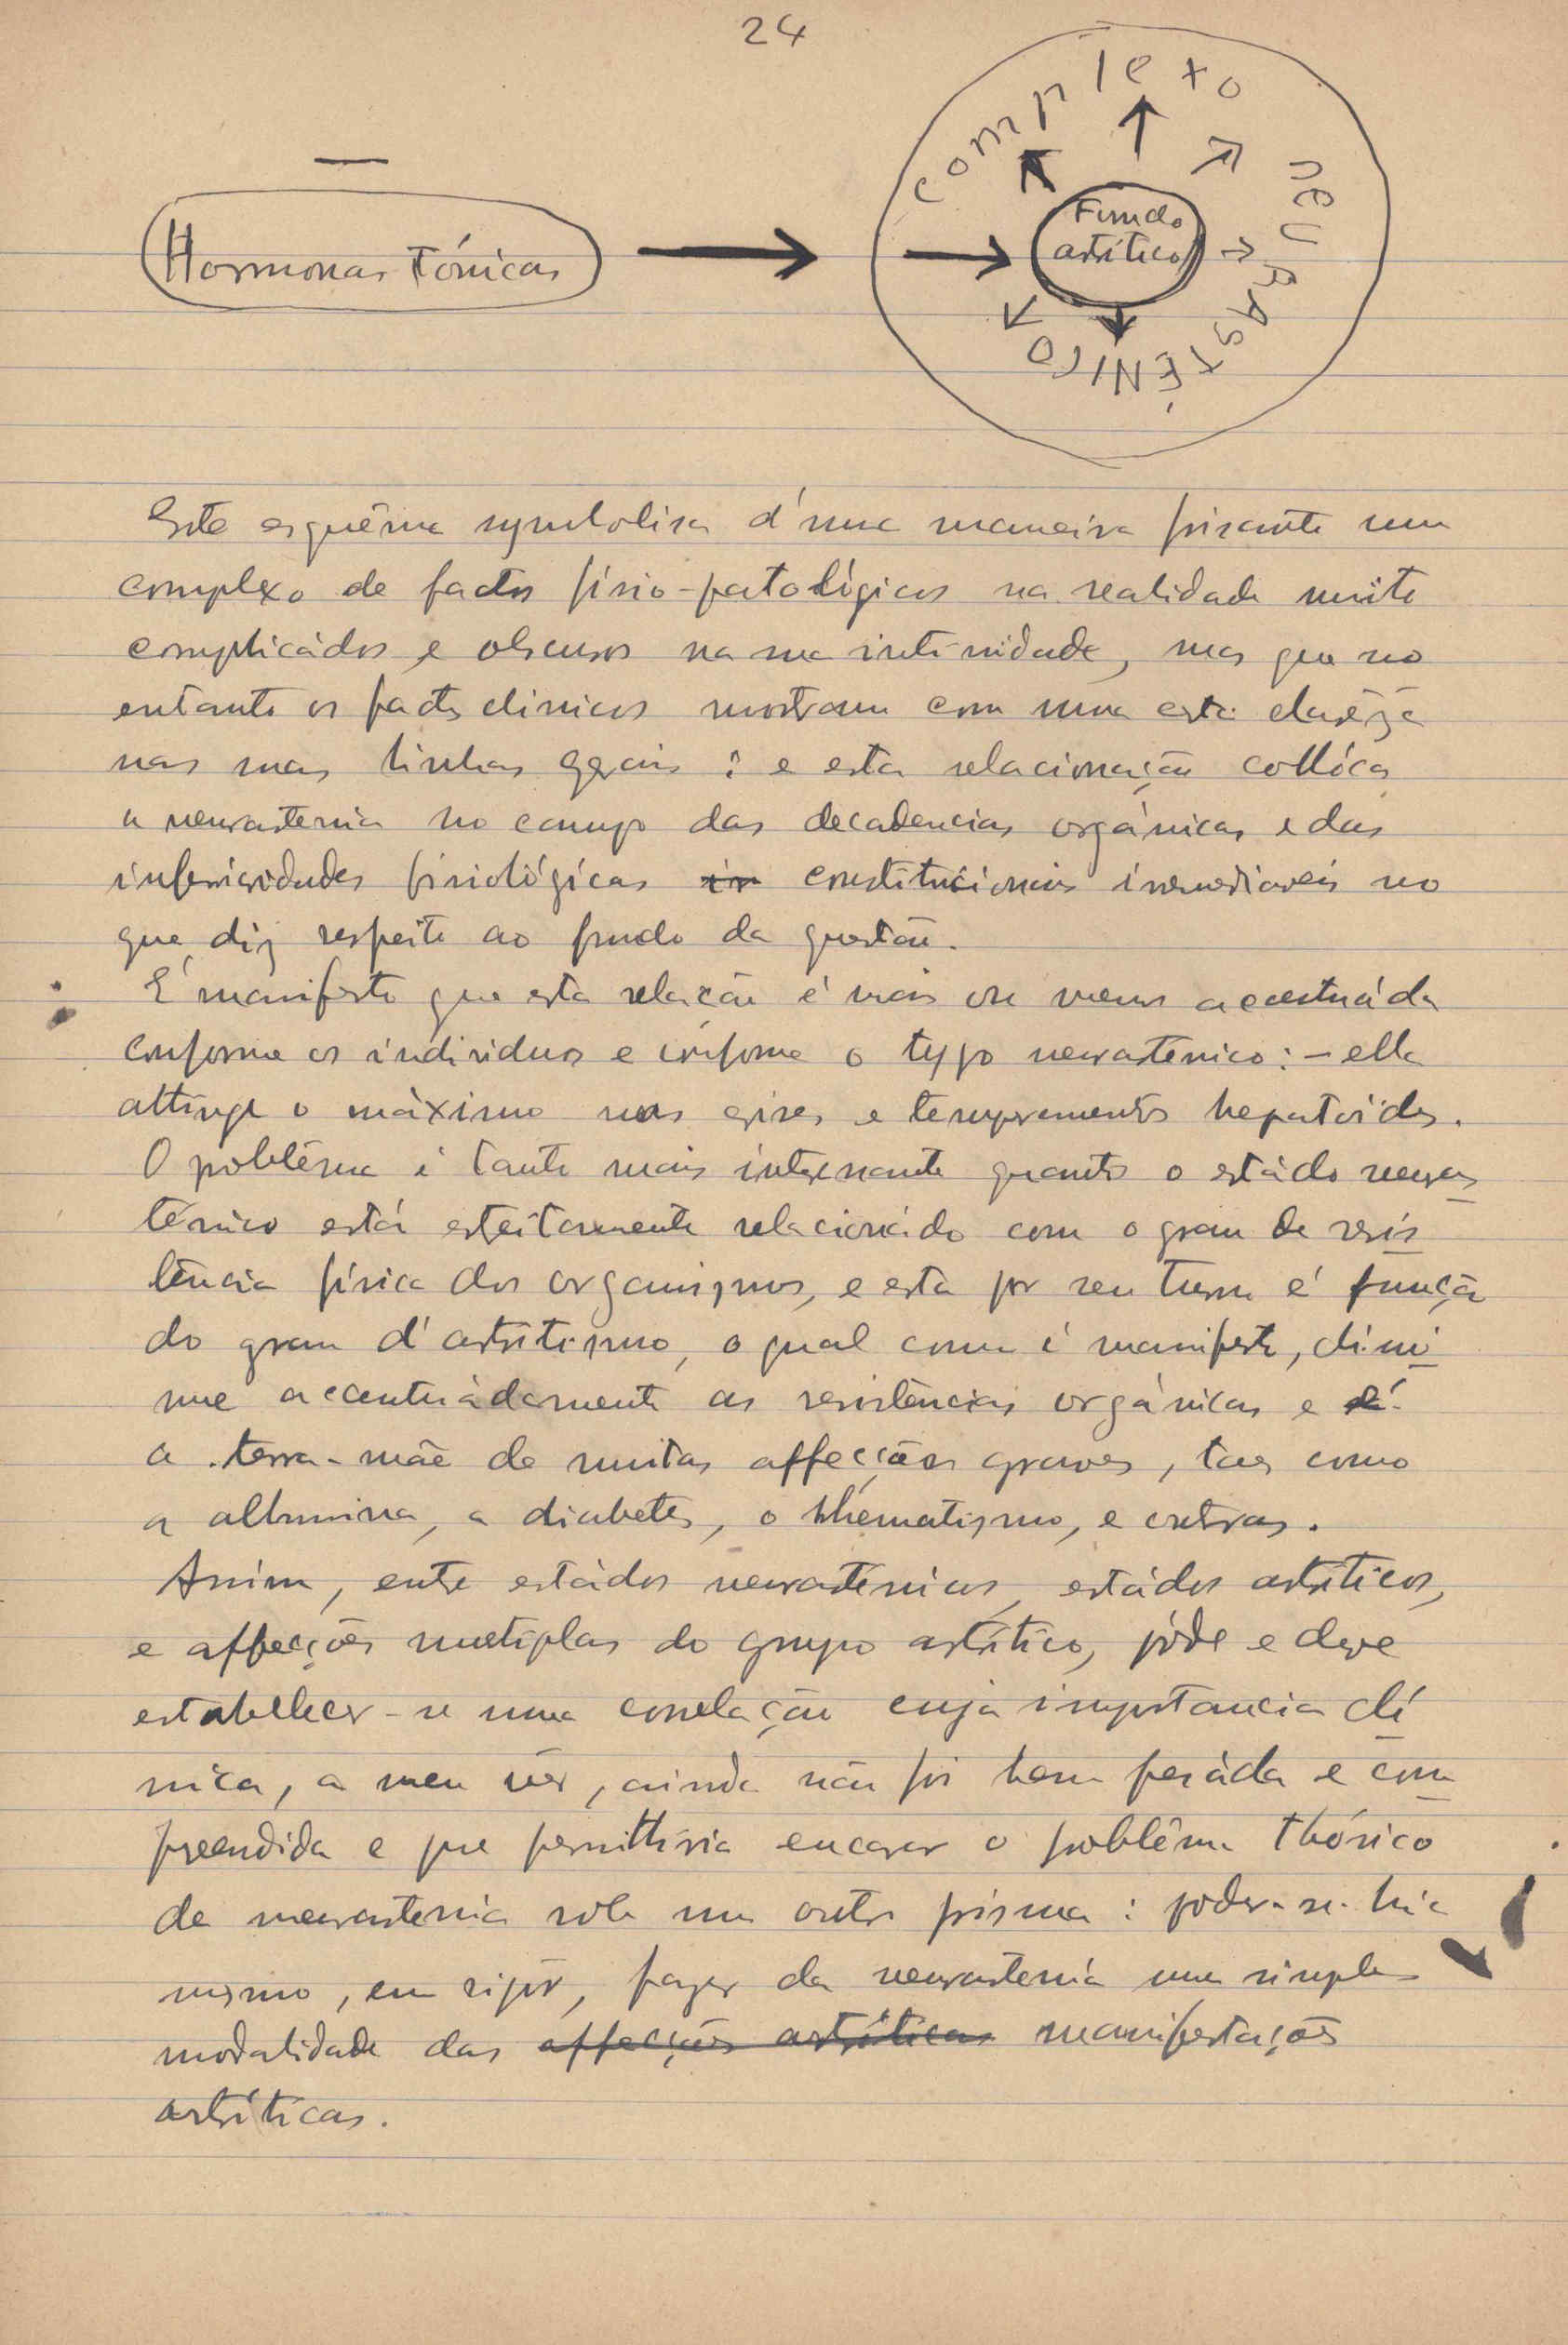 24
complexo neurASTÉNICO
Fundo
artrítico
Hormonas Tónicas
Este esquêma symbolisa d'uma maneira frisante um
complexo de factos fisio-patológicos na realidade muito
complicádos e obscuros na sua intimidade, mas que no
entanto os factos clinicos mostram com uma certa clarêza
nas suas linhas geraes : e esta relacionação collóca
a neurastenia no campo das decadencias orgánicas e das
inferioridades fisiológicas in constitucionais irremediaveis no
que diz respeito ao fundo da questão.
É manifesto que esta relação é mais ou menos accentuáda
conforme os individuos e conforme o typo neurasténico : - ella
attinge o máximo nas crises e temperamentos hepatoides.
O problêma é tanto mais interessante quanto o estádo neuras
ténico está estreitamente relacionádo com o grau de resis
tência física dos organismos, e esta por seu turno é função
do grau d'artritismo, o qual como é manifesto, dimi
nue accentuádamente as resistências orgánicas e é
a terra-mãe de muitas affecções graves, taes como
a albumina, a diabetes, o rheumatismo, e outras.
Assim, entre estádos neurasténicos, estádos artríticos,
e affecções multiplas do grupo artrítico, póde e deve
estabellecer-se uma correlação cuja importancia clí
nica, a meu vêr, ainda não foi bem pesáda e com
preendida e que permittiria encarar o problêma theórico
da neurastenia sob um outro prisma : poder-se-hia
mesmo, em rigôr, fazer da neurastenia uma simples
modalidade das affecções artríticas manifestações
artríticas.